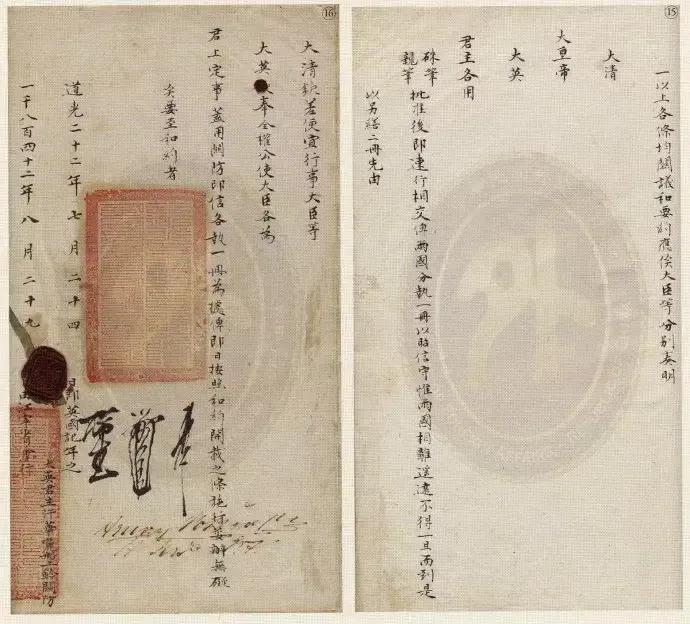 ⑮
一以上各條均關議和要約應俟大臣等分別奏明
大清
大皇帝
大英
君主各用
硃筆
親筆批准後即速行相交俾兩國分執一冊以昭信守惟兩國相離遙遠不得一旦而到是
以另繕二冊先由
⑯
大清欽差便宜行事大臣等
大英 奉全權公使大臣各為
君上定事蓋用關防印信各執一冊為據俾即日按照和約開載之條施行妥辦無礙
矣要至和約者
道光二十二年七月二十四日即英國記年之
一千八百四十二年八月二十九 由江寧省會行
大英君主汗華 船上鈐關防